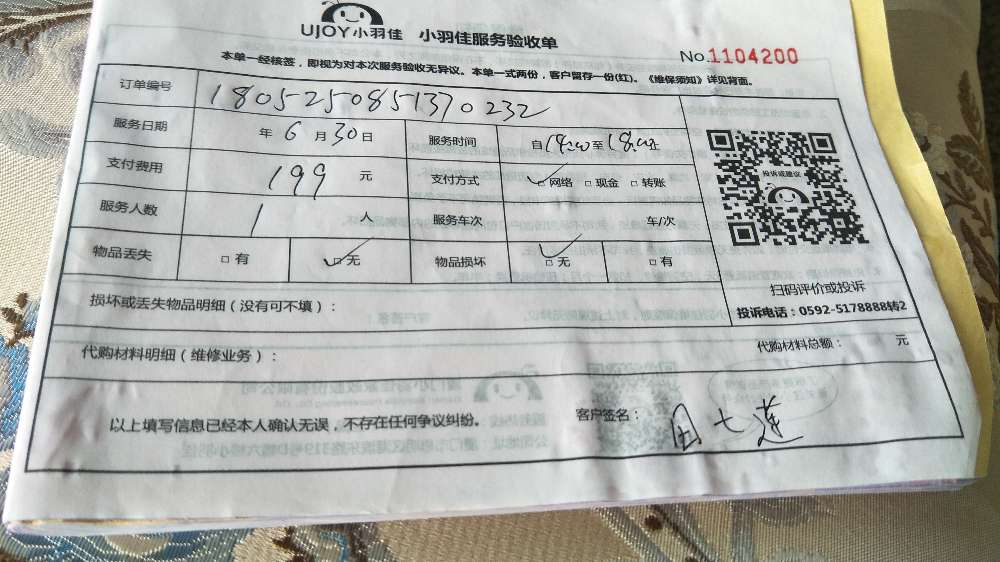 UJOY小羽佳 小羽佳服务验收单
No.1104200
本单一经核签，即视为对本次服务验收无异议。本单一式两份，客户留存一份(红)。《维保须知》详见背面。
订单编号 1805250851370232
服务日期 年 6 月 30 日 服务时间 自 至 18:00 止
支付费用 199 元 支付方式 ☑网络 □现金 □转账
服务人数 1 人 服务车次 车/次
物品丢失 □有 ☑无 物品损坏 ☑无 □有
投诉或建议
扫码评价或投诉
投诉电话：0592-5178888转2
损坏或丢失物品明细（没有可不填）：
代购材料明细（维修业务）： 代购材料总额： 元
以上填写信息已经本人确认无误，不存在任何争议纠纷。 客户签名： 田七莲